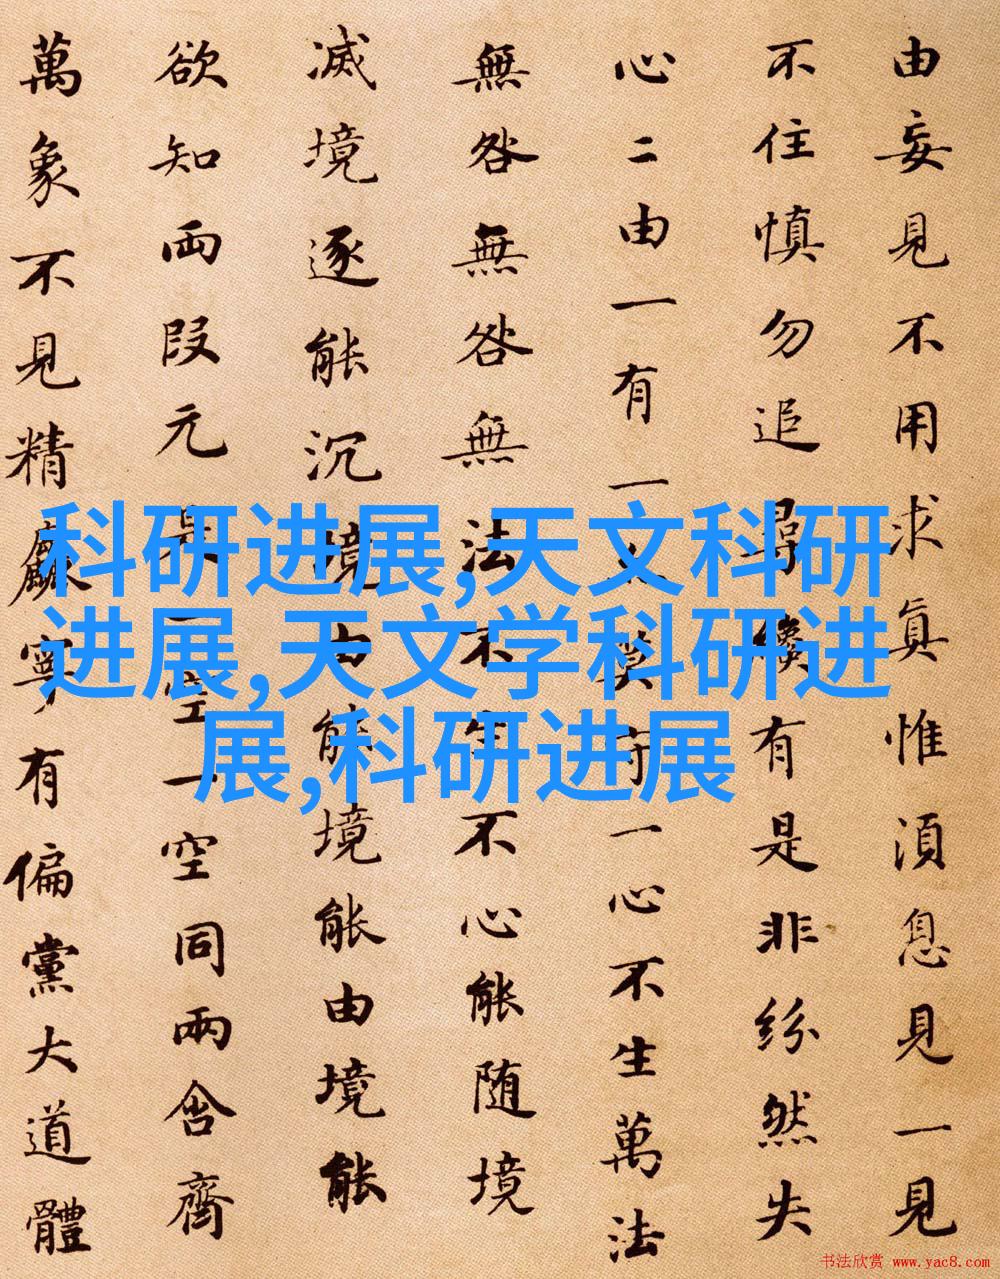 由妄見不用求真惟湏息見一見
不住慎勿追尋有是非紛然失
心二由一有一莫守一心不生萬法
無咎無咎無法不生不心能随境
滅境逐能沉境由能境能由境能
欲知兩段元是一空一空同兩含齊
萬象不見精麤寧有偏黨大道體
科研进展,天文科研
进展,天文学科研进
展,科研进展
书法欣赏 www.yac8.com